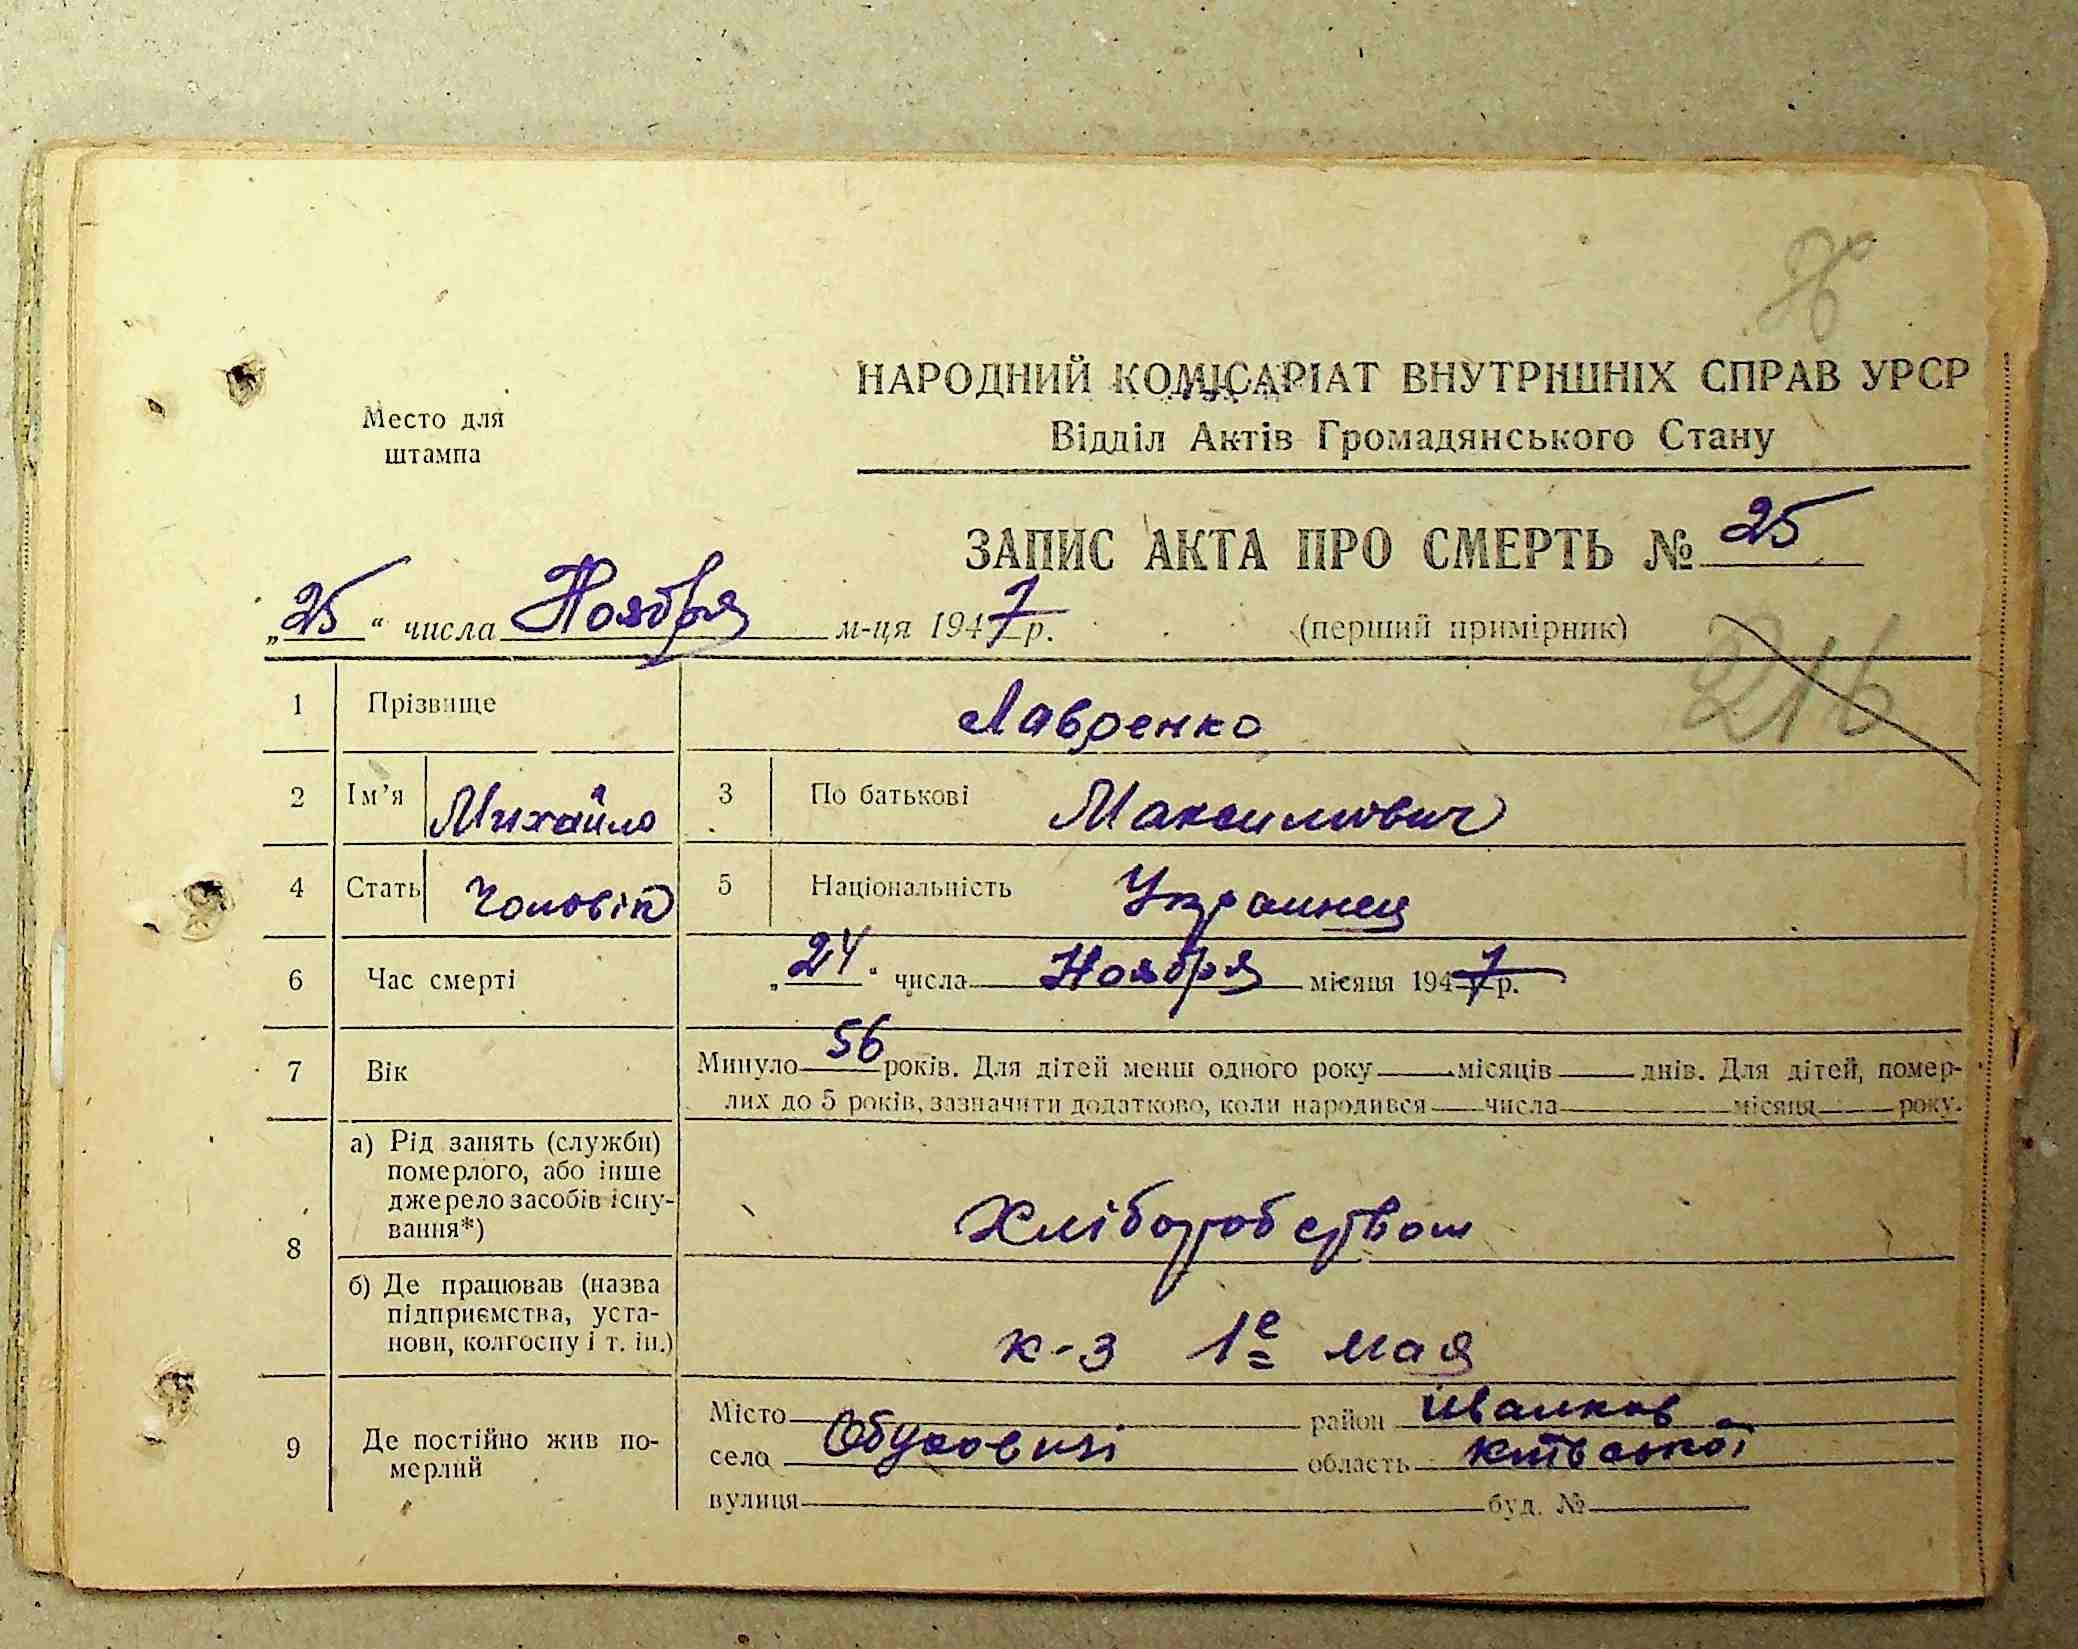 Место для
штампа
НАРОДНИЙ КОМІСАРІАТ ВНУТРІШНІХ СПРАВ УРСР
Відділ Актів Громадянського Стану
ЗАПИС АКТА ПРО СМЕРТЬ № 25
„25“ числа Ноября м-ця 1947 р. (перший примірник)
216
1 Прізвище Лавренко
2 Ім'я Михайло 3 По батькові Максимович
4 Стать Чоловік 5 Національність Украинец
6 Час смерті „24“ числа Ноября місяця 1947 р.
7 Вік Минуло 56 років. Для дітей менш одного року місяців днів. Для дітей, помер-
лих до 5 років, зазначити додатково, коли народився числа місяця року.
8 а) Рід занять (служби)
померлого, або інше
джерело засобів існу-
вання*)
Хліборобством
б) Де працював (назва
підприємства, уста-
нови, колгоспу і т. ін.)
к-з 1е мая
9 Де постійно жив по-
мерлий
Місто район Иванков
село Обуховичі область Київської
вулиця буд. №